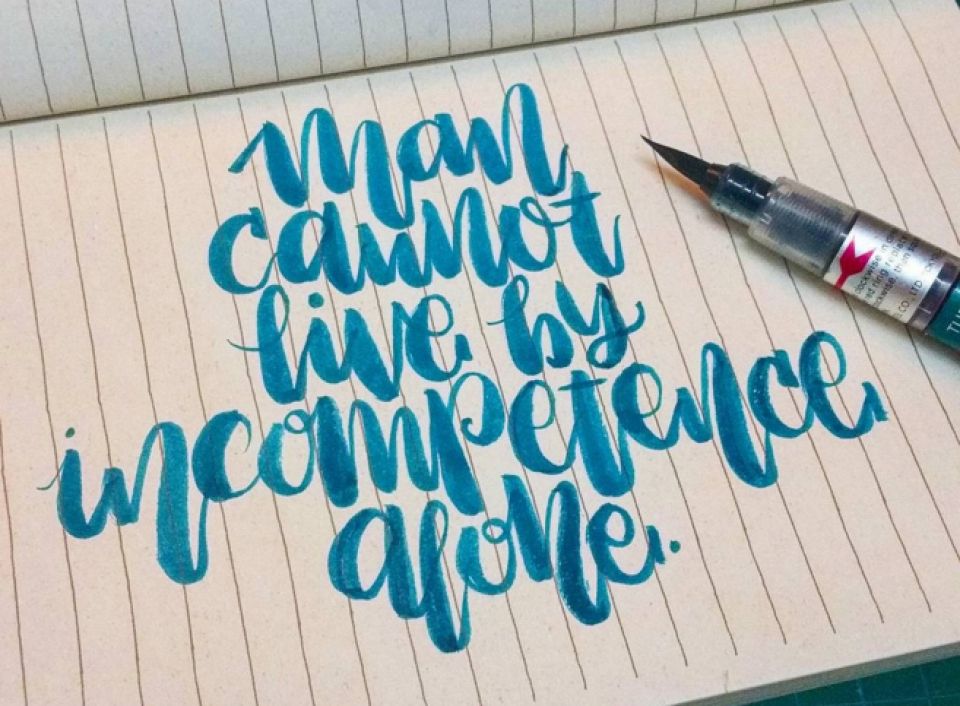 man
cannot
live by
incompetence
alone.
CO., LTD